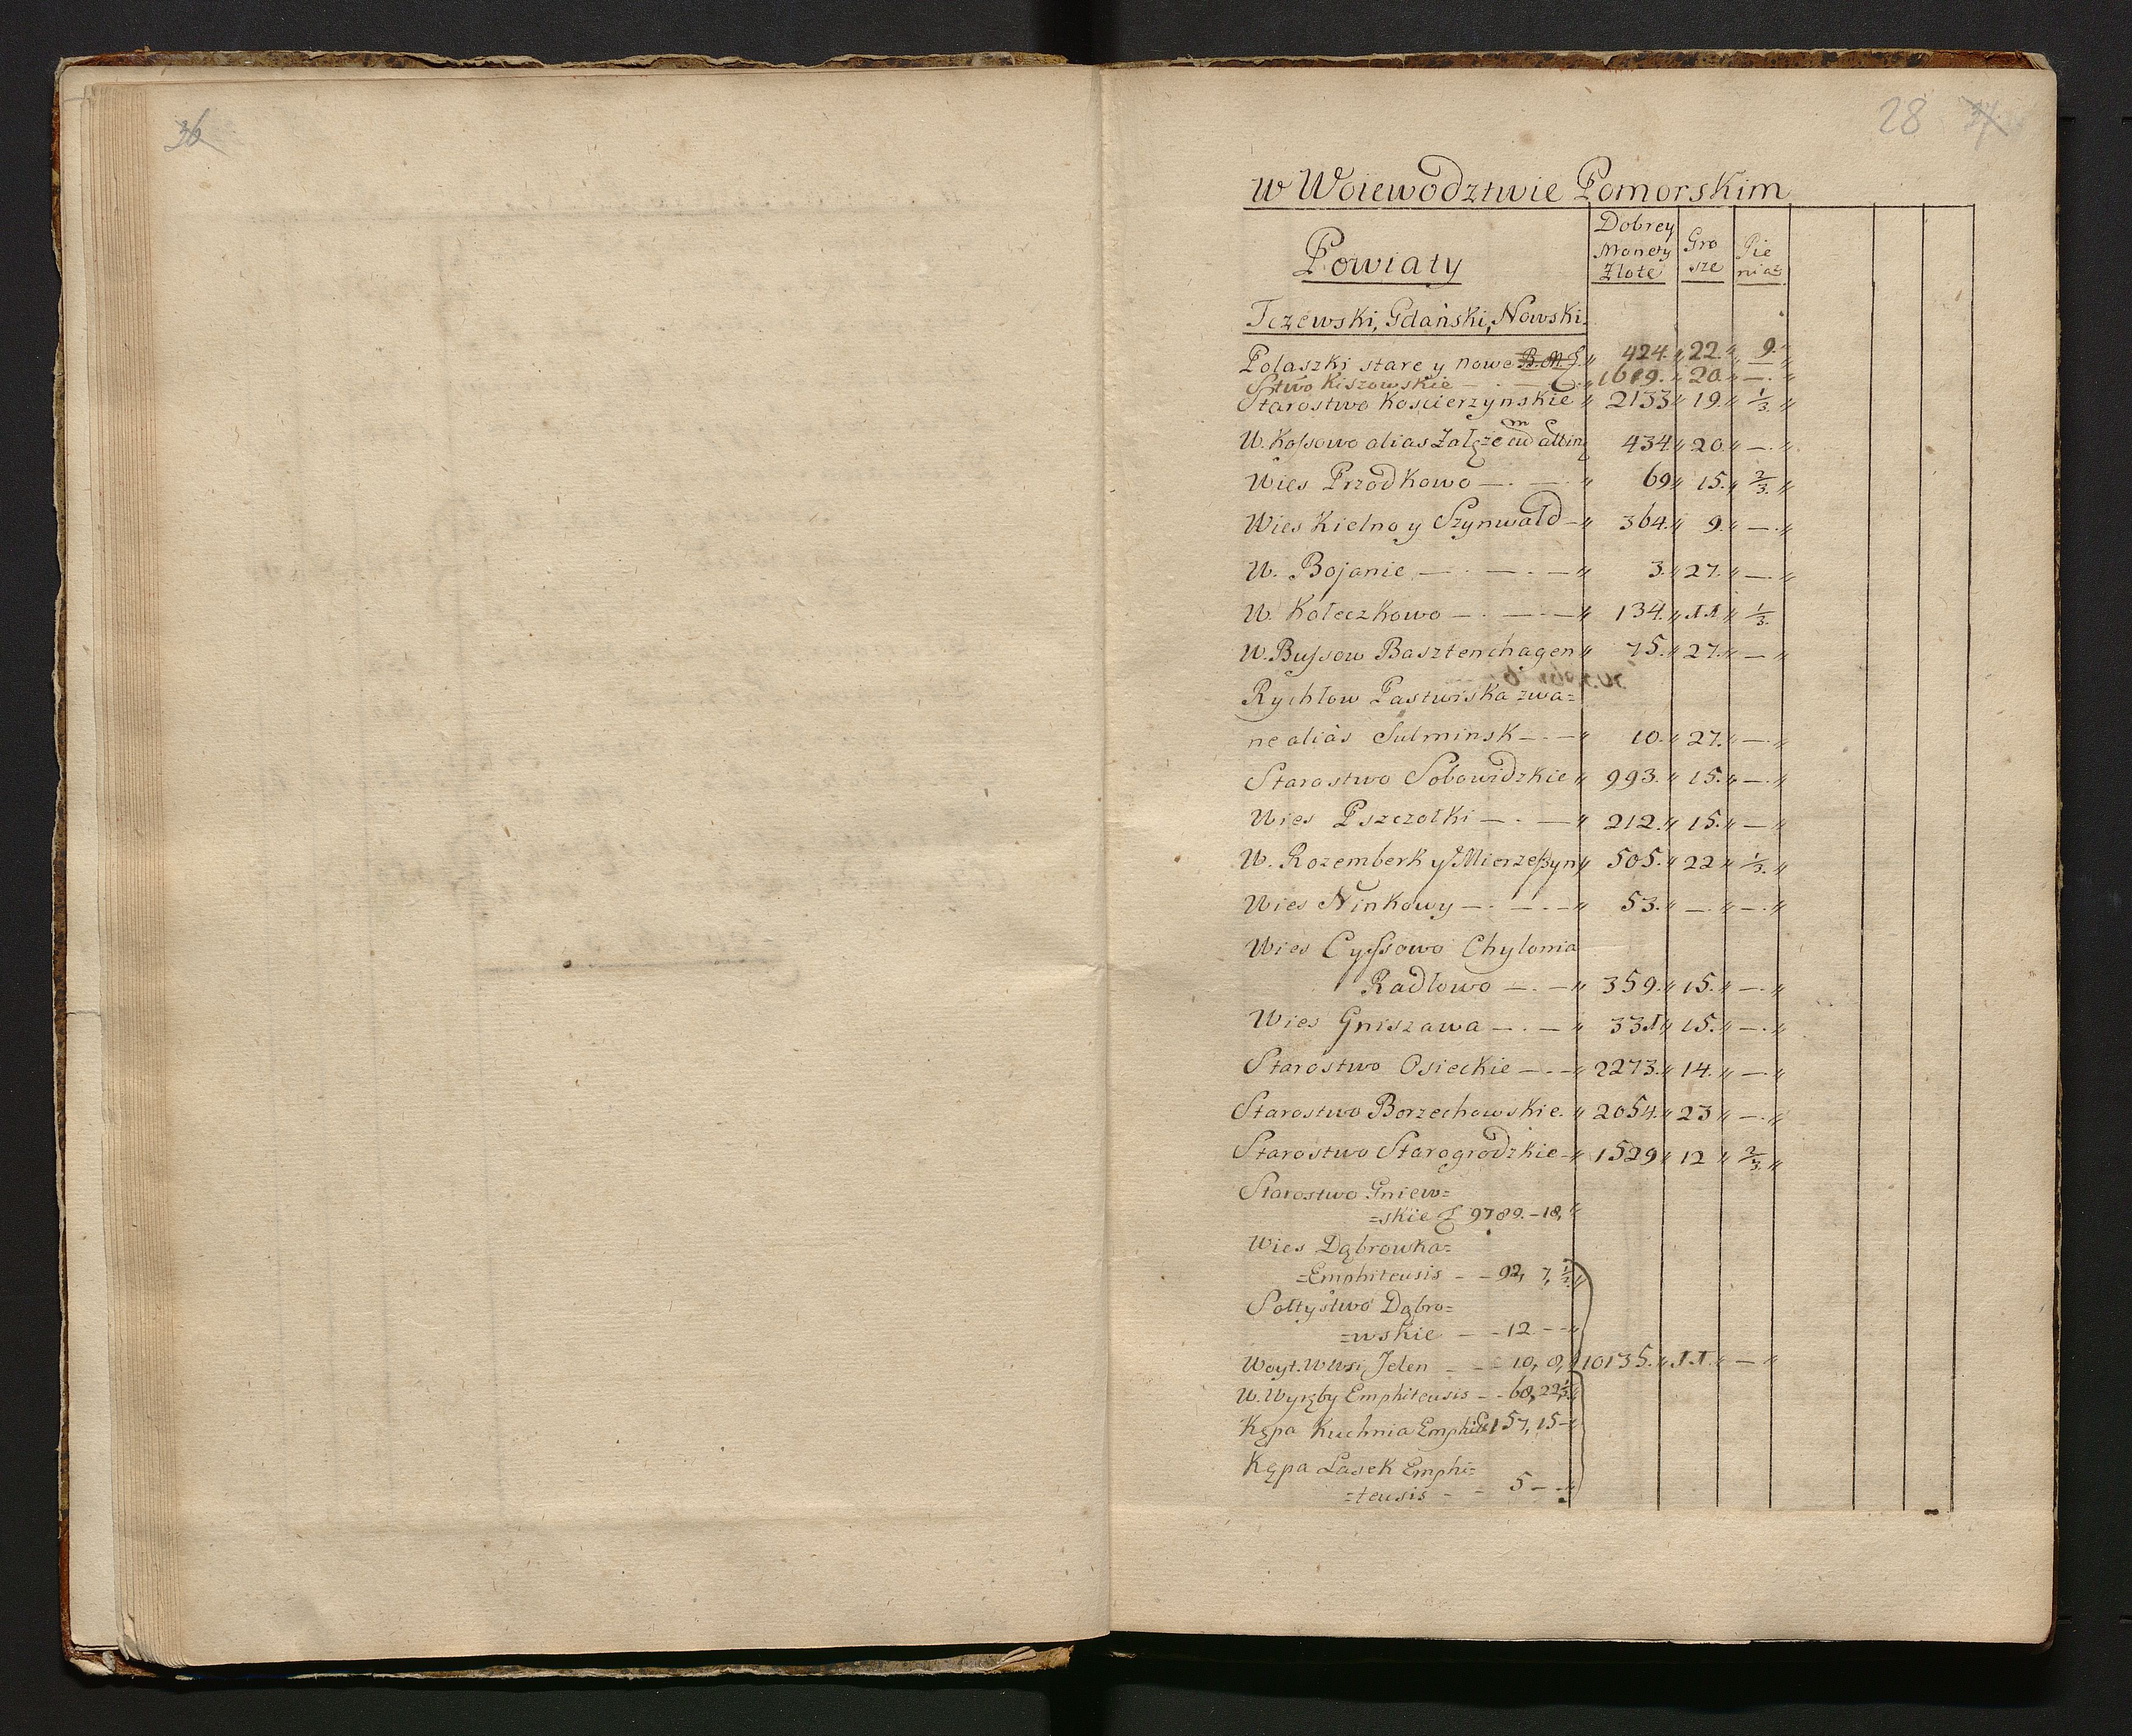 36
28 37
w Woiewodztwie Pomorskim
Powiaty
Dobrey Monety Złote
Grosze
Pieniąż
Tczewski, Gdański, Nowski.
Polaszki stare y nowe B. M. " 424. " 22. " 9. "
Stwo Kiszowskie — . — " 1619. " 20 " — . "
Starostwo Koscierzynskie " 2133 " 19. " 1/3. "
W. Kossowo alias Załęże 434. " 20. " — . "
Wies Przodkowo — . — . " 69 " 15. " 2/3. "
Wies Kielno y Szynwałd — " 364. " 9. " — . "
W. Bojanie — . — . — " 3. " 27. " — . "
W. Kołeczkowo — . — . — " 134. " 11 " 1/3.
W. Bussow Basztenchagen " 75. " 27. " — "
Rychłow Pastwiska zwa=
ne alias Sulminsk — . — " 10. " 27. " — . "
Starostwo Sobowidzkie " 993. " 15. " — . "
Wies Pszczołki — . — " 212. " 15. " — "
W. Rozemberk y Mierzeszyn " 505. " 22 " 1/3. "
Wies Ninkowy — . — . — " 53. " — . " — . "
Wies Cyssowo Chylonia
Radłowo — . — " 359. " 15. " — . "
Wies Gniszawa — . — " 331 " 15. " — . "
Starostwo Osieckie — . — " 2273. " 14. " — "
Starostwo Borzechowskie. " 2054. " 23 " — . "
Starostwo Starogrodzkie — " 1529 " 12 " 2/3. "
Starostwo Gniew=
=skie 9789. — 18, "
Wies Dąbrowka=
=Emphiteusis — — 92, 7, 1/3 "
Sołtystwo Dąbro=
=wskie — — 12 — — "
Woyt. W Wsi Jelen — — 10, 8, " 10135. " 11. " — "
W. Wyręby Emphiteusis — — 68, 22 1/3. "
Kępa Kuchnia Emphit 157, 15 — "
Kępa Lasek Emphi=
=teusis — — 5 — — "